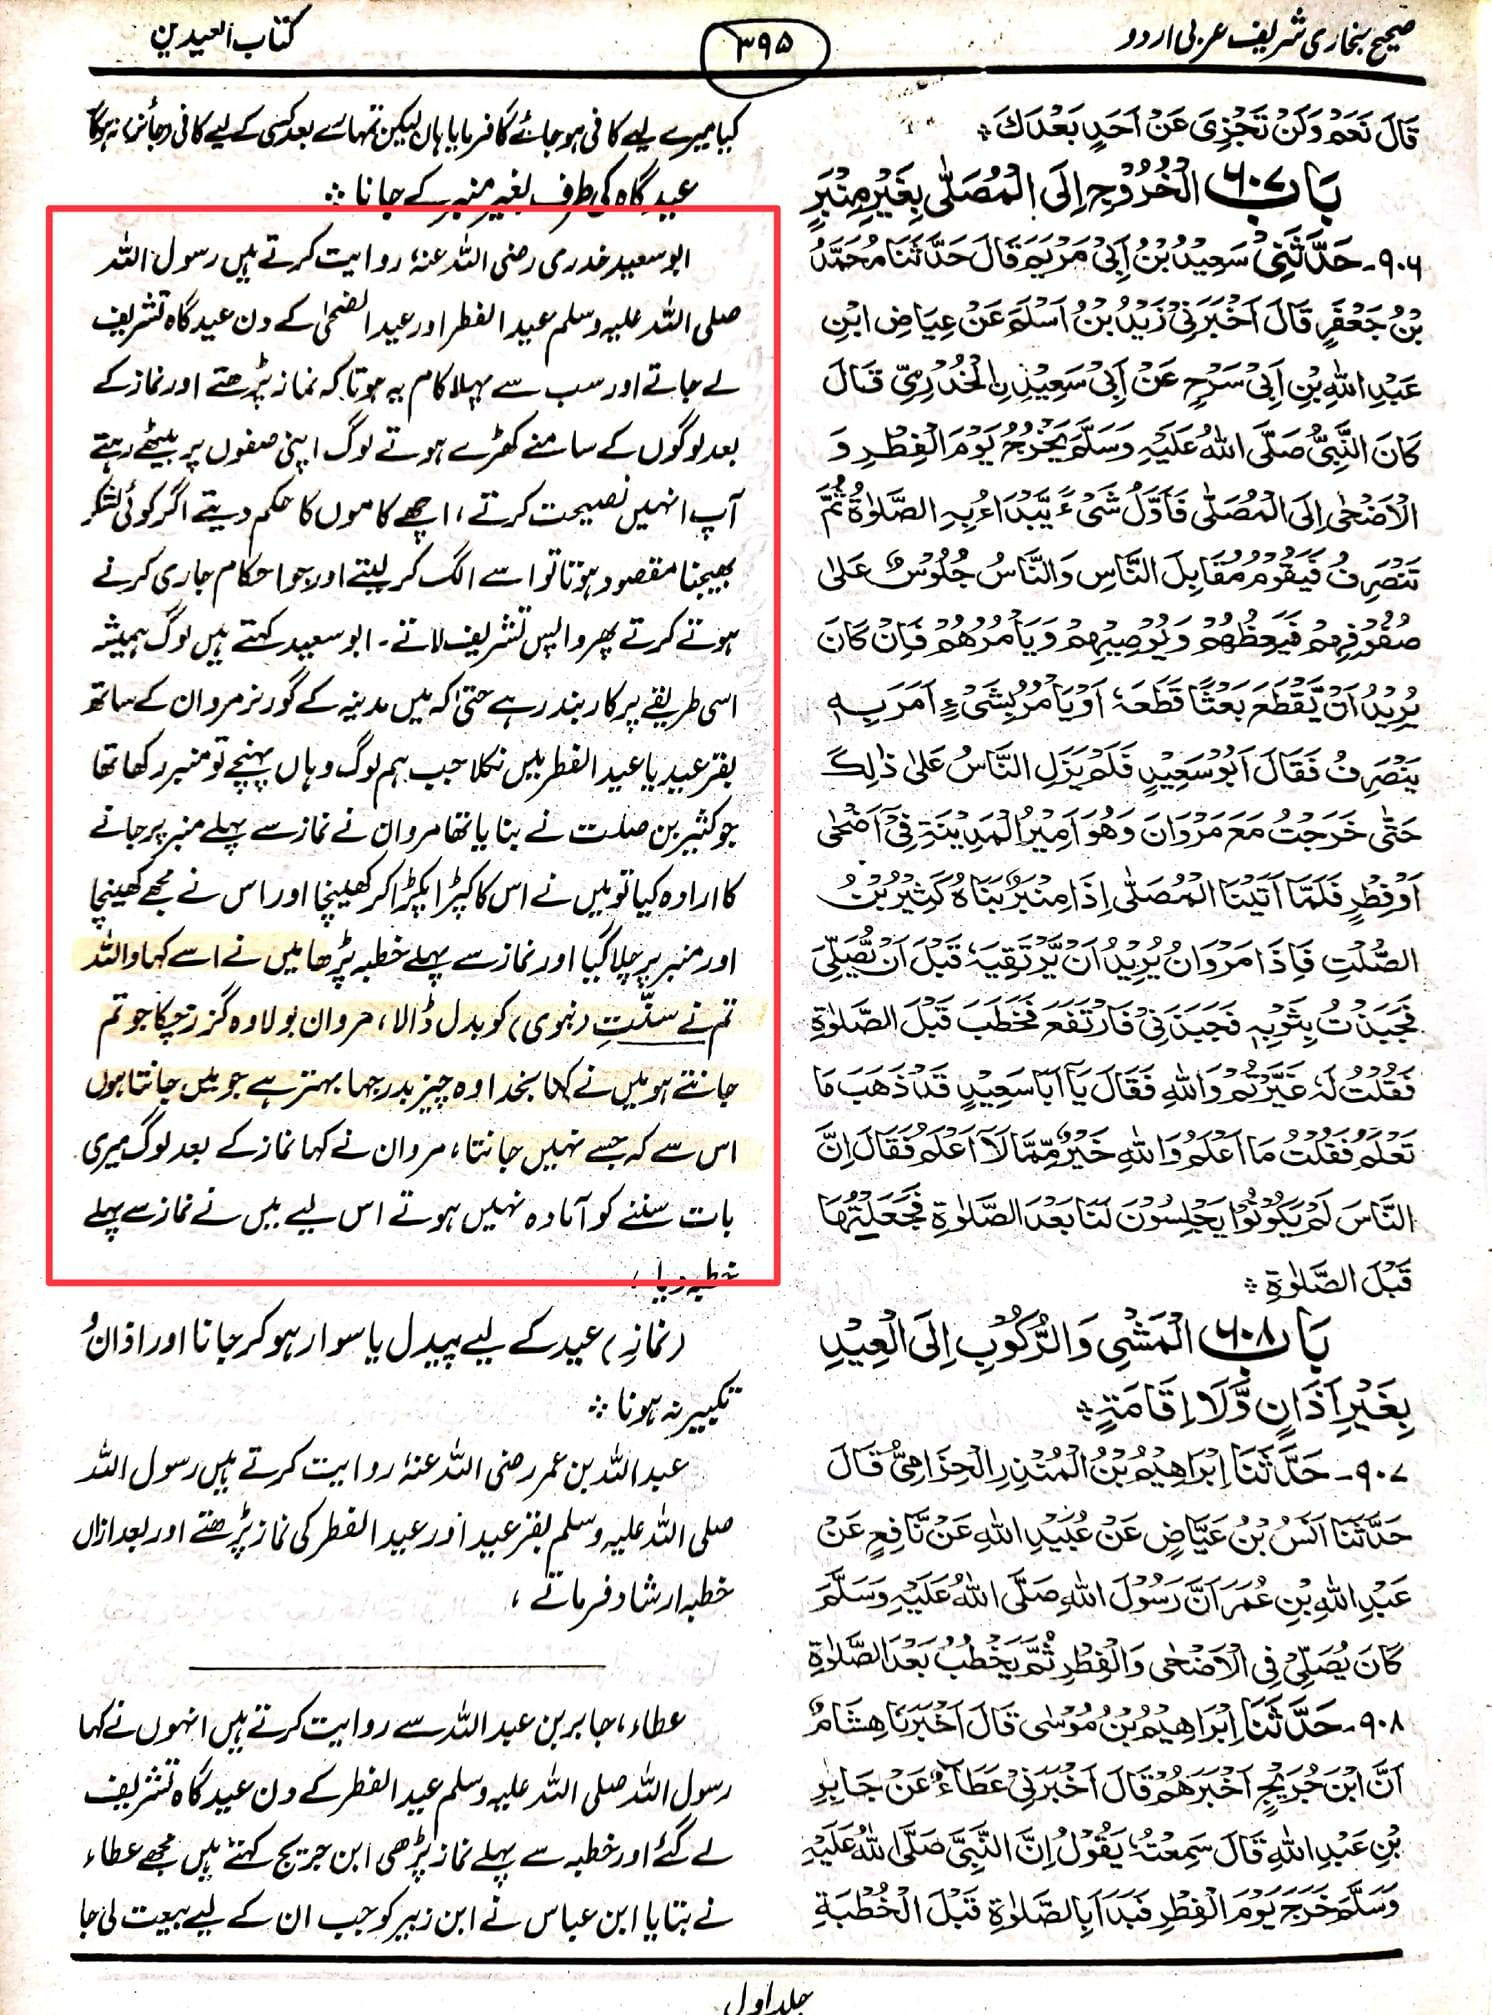 صحیح بخاری شریف عربی اردو
۳۹۵
کتاب العیدین
قَالَ نَعَمْ وَلَنْ تَجْزِیَ عَنْ اَحَدٍ بَعْدَكَ ÷
بَاب ۶۰۷ الْخُرُوْجِ اِلَی الْمُصَلّٰی بِغَیْرِ مِنْبَرٍ
۹۰۶۔ حَدَّثَنِیْ سَعِیْدُ بْنُ اَبِیْ مَرْیَمَ قَالَ حَدَّثَنَا مُحَمَّدُ
بْنُ جَعْفَرٍ قَالَ اَخْبَرَنِیْ زَیْدُ بْنُ اَسْلَمَ عَنْ عِیَاضِ ابْنِ
عَبْدِ اللّٰهِ بْنِ اَبِیْ سَرْحٍ عَنْ اَبِیْ سَعِیْدِنِ الْخُدْرِیِّ قَالَ
كَانَ النَّبِیُّ صَلَّی اللّٰهُ عَلَیْهِ وَسَلَّمَ یَخْرُجُ یَوْمَ الْفِطْرِ وَ
الْاَضْحٰی اِلَی الْمُصَلّٰی فَاَوَّلُ شَیْءٍ یَّبْدَاءُ بِهِ الصَّلٰوةُ ثُمَّ
تَنْصَرِفُ فَیَقُوْمُ مُقَابِلَ النَّاسِ وَالنَّاسُ جُلُوْسٌ عَلٰی
صُفُوْفِهِمْ فَیَعِظُهُمْ وَیُوْصِیْهِمْ وَیَاْمُرُهُمْ فَاِنْ كَانَ
یُرِیْدُ اَنْ یَّقْطَعَ بَعْثًا قَطَعَهٗ اَوْ یَاْمُرُ بِشَیْءٍ اَمَرَ بِهٖ
یَنْصَرِفُ فَقَالَ اَبُوْ سَعِیْدٍ فَلَمْ یَزَلِ النَّاسُ عَلٰی ذٰلِكَ
حَتّٰی خَرَجْتُ مَعَ مَرْوَانَ وَهُوَ اَمِیْرُ الْمَدِیْنَةِ فِیْ اَضْحٰی
اَوْ فِطْرٍ فَلَمَّا اَتَیْنَا الْمُصَلّٰی اِذَا مِنْبَرٌ بَنَاهُ كَثِیْرُ بْنُ
الصَّلْتِ فَاِذَا مَرْوَانُ یُرِیْدُ اَنْ یَّرْتَقِیَهٗ قَبْلَ اَنْ یُّصَلِّیَ
فَجَبَذْتُ بِثَوْبِهٖ فَجَبَذَنِیْ فَارْتَفَعَ فَخَطَبَ قَبْلَ الصَّلٰوةِ
فَقُلْتُ لَهٗ غَیَّرْتُمْ وَاللّٰهِ فَقَالَ یَا اَبَا سَعِیْدٍ قَدْ ذَهَبَ مَا
تَعْلَمُ فَقُلْتُ مَا اَعْلَمُ وَاللّٰهِ خَیْرٌ مِّمَّا لَا اَعْلَمُ فَقَالَ اِنَّ
النَّاسَ لَمْ یَكُوْنُوْا یَجْلِسُوْنَ لَنَا بَعْدَ الصَّلٰوةِ فَجَعَلْتُهَا
قَبْلَ الصَّلٰوةِ ÷
بَاب ۶۰۸ الْمَشْیِ وَالرُّكُوْبِ اِلَی الْعِیْدِ
بِغَیْرِ اَذَانٍ وَّلَا اِقَامَةٍ ÷
۹۰۷۔ حَدَّثَنَا اِبْرَاهِیْمُ بْنُ الْمُنْذِرِ الْحِزَامِیُّ قَالَ
حَدَّثَنَا اَنَسُ بْنُ عَیَّاضٍ عَنْ عُبَیْدِ اللّٰهِ عَنْ نَّافِعٍ عَنْ
عَبْدِ اللّٰهِ بْنِ عُمَرَ اَنَّ رَسُوْلَ اللّٰهِ صَلَّی اللّٰهُ عَلَیْهِ وَسَلَّمَ
كَانَ یُصَلِّیْ فِی الْاَضْحٰی وَالْفِطْرِ ثُمَّ یَخْطُبُ بَعْدَ الصَّلٰوةِ
۹۰۸۔ حَدَّثَنَا اِبْرَاهِیْمُ بْنُ مُوْسٰی قَالَ اَخْبَرَنَا هِشَامٌ
اَنَّ ابْنَ جُرَیْجٍ اَخْبَرَهُمْ قَالَ اَخْبَرَنِیْ عَطَآءٌ عَنْ جَابِرِ
بْنِ عَبْدِ اللّٰهِ قَالَ سَمِعْتُهٗ یَقُوْلُ اِنَّ النَّبِیَّ صَلَّی اللّٰهُ عَلَیْهِ
وَسَلَّمَ خَرَجَ یَوْمَ الْفِطْرِ فَبَدَاَ بِالصَّلٰوةِ قَبْلَ الْخُطْبَةِ
کیا میرے لیے کافی ہو جائے گا فرمایا ہاں لیکن تمہارے بعد کسی کے لیے کافی (جائز) نہ ہوگا
عید گاہ کی طرف بغیر منبر کے جانا ÷
ابو سعید خدری رضی اللہ عنہٗ روایت کرتے ہیں رسول اللہ
صلی اللہ علیہ وسلم عید الفطر اور عید الضحیٰ کے دن عید گاہ تشریف
لے جاتے اور سب سے پہلا کام یہ ہوتا کہ نماز پڑھتے اور نماز کے
بعد لوگوں کے سامنے کھڑے ہوتے لوگ اپنی صفوں پر بیٹھے رہتے
آپ انہیں نصیحت کرتے، اچھے کاموں کا حکم دیتے اگر کوئی لشکر
بھیجنا مقصود ہوتا تو اسے الگ کر لیتے اور جو احکام جاری کرنے
ہوتے کرتے پھر واپس تشریف لاتے۔ ابو سعید کہتے ہیں لوگ ہمیشہ
اسی طریقے پر کار بند رہے حتیٰ کہ میں مدینہ کے گورنر مروان کے ساتھ
بقر عید یا عید الفطر میں نکلا جب ہم لوگ وہاں پہنچے تو منبر رکھا تھا
جو کثیر بن صلت نے بنایا تھا مروان نے نماز سے پہلے منبر پر جانے
کا ارادہ کیا تو میں نے اس کا کپڑا پکڑ کر کھینچا اور اس نے مجھے کھینچا
اور منبر پر چلا گیا اور نماز سے پہلے خطبہ پڑھا میں نے اسے کہا واللہ
تم نے سنّتِ (نبوی) کو بدل ڈالا، مروان بولا وہ گزر چکا جو تم
جانتے ہو میں نے کہا بخدا وہ چیز بدرجہا بہتر ہے جو میں جانتا ہوں
اس سے کہ جسے نہیں جانتا، مروان نے کہا نماز کے بعد لوگ میری
بات سننے کو آمادہ نہیں ہوتے اس لیے میں نے نماز سے پہلے
خطبہ دیا،
(نمازِ) عید کے لیے پیدل یا سوار ہو کر جانا اور اذان و
تکبیر نہ ہونا ÷
عبداللہ بن عمر رضی اللہ عنہٗ روایت کرتے ہیں رسول اللہ
صلی اللہ علیہ وسلم بقر عید اور عید الفطر کی نماز پڑھتے اور بعد ازاں
خطبہ ارشاد فرماتے،
عطاء، جابر بن عبداللہ سے روایت کرتے ہیں انہوں نے کہا
رسول اللہ صلی اللہ علیہ وسلم عید الفطر کے دن عید گاہ تشریف
لے گئے اور خطبہ سے پہلے نماز پڑھی ابن جریج کہتے ہیں مجھے عطاء
نے بتایا ابن عباس نے ابن زبیر کو جب ان کے لیے بیعت لی جا
جلد اول